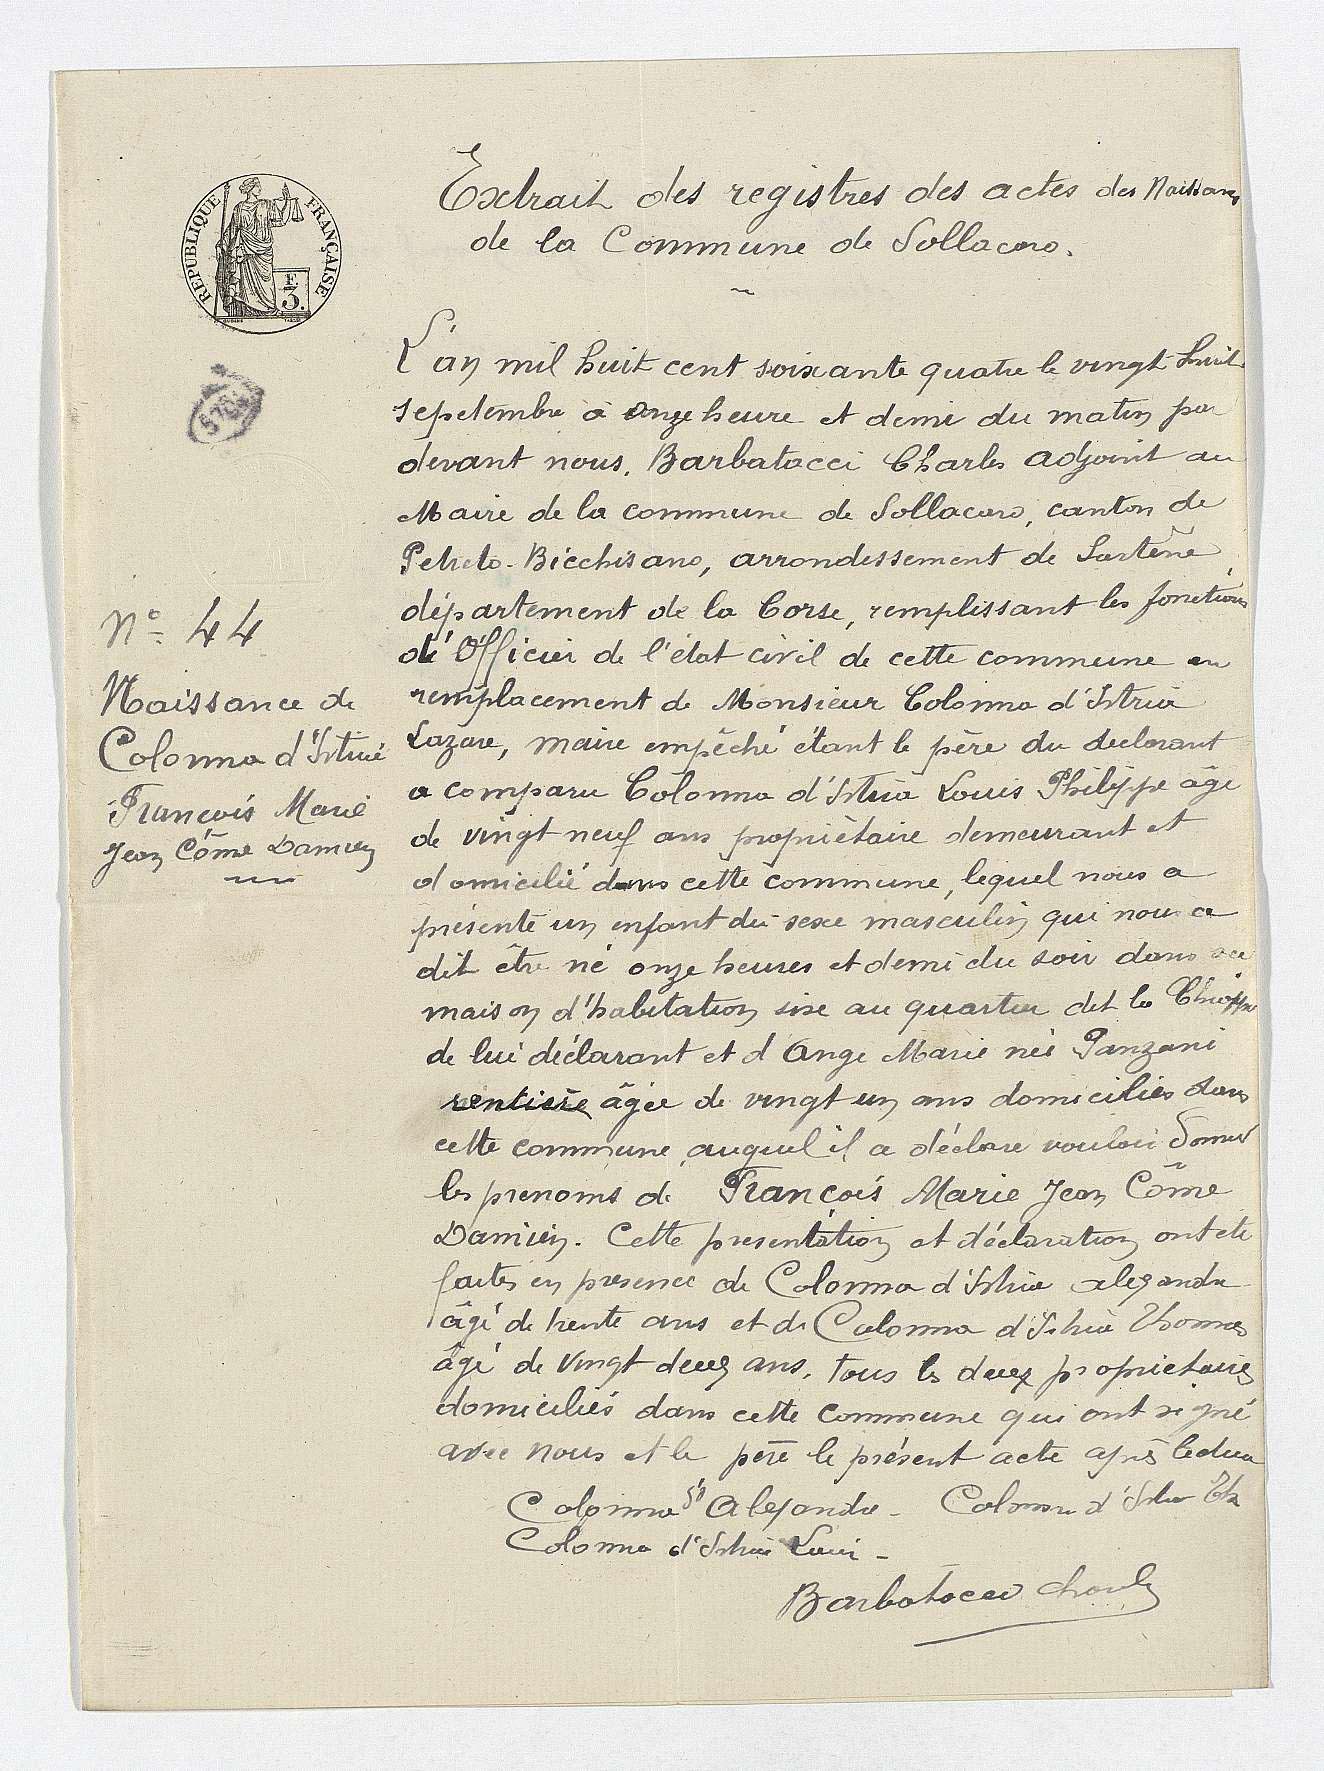 Extrait des registres des actes des Naissances
de la Commune de Sollacaro.
REPUBLIQUE FRANÇAISE
F
3.
L'an mil huit cent soixante quatre le vingt huit
septembre à onze heure et demi du matin par
devant nous. Barbatacci Charles adjoint au
Maire de la commune de Sollacaro, canton de
Petreto-Bicchisano, arrondissement de Sartène
département de la Corse, remplissant les fonctions
d'Officier de l'état civil de cette commune en
remplacement de Monsieur Colonna d'Istria
Lazare, maire empêché étant le père du declarant
a comparu Colonna d'Istria Louis Philippe âgé
de vingt neuf ans propriètaire demeurant et
domicilié dans cette commune, lequel nous a
présenté un enfant du sexe masculin qui nous a
dit être né onze heures et demi du soir dans sa
maison d'habitation sise au quartier dit la
de lui déclarant et d'Ange Marie neé Panzani
rentière âgée de vingt un ans domiciliés dans
cette commune, auquel il a déclare vouloir donner
les prenoms de François Marie Jean Côme
Damien. Cette presentation et déclaration ont ete
faites en presence de Colonna d'Istria alexandre
âgé de trente ans et de Colonna d'Istria Thomas
âgé de vingt deux ans. tous les deux proprietaires
domiciliés dans cette commune qui ont signé
avec nous et le père le présent acte après lecture
Colonna d'Is Alexandre - Colonna d'Istria Th
Colonna d'Istria Louis -
Barbatacci Charles
Nº 44
Naissance de
Colonna d'Istria
François Marie
Jean Côme Damien